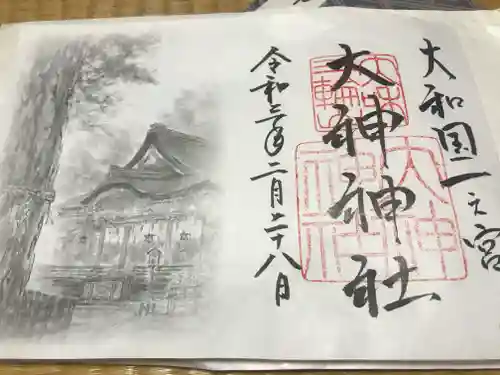 大和国一之宮
大神神社
令和二年二月二十八日
大神
神社